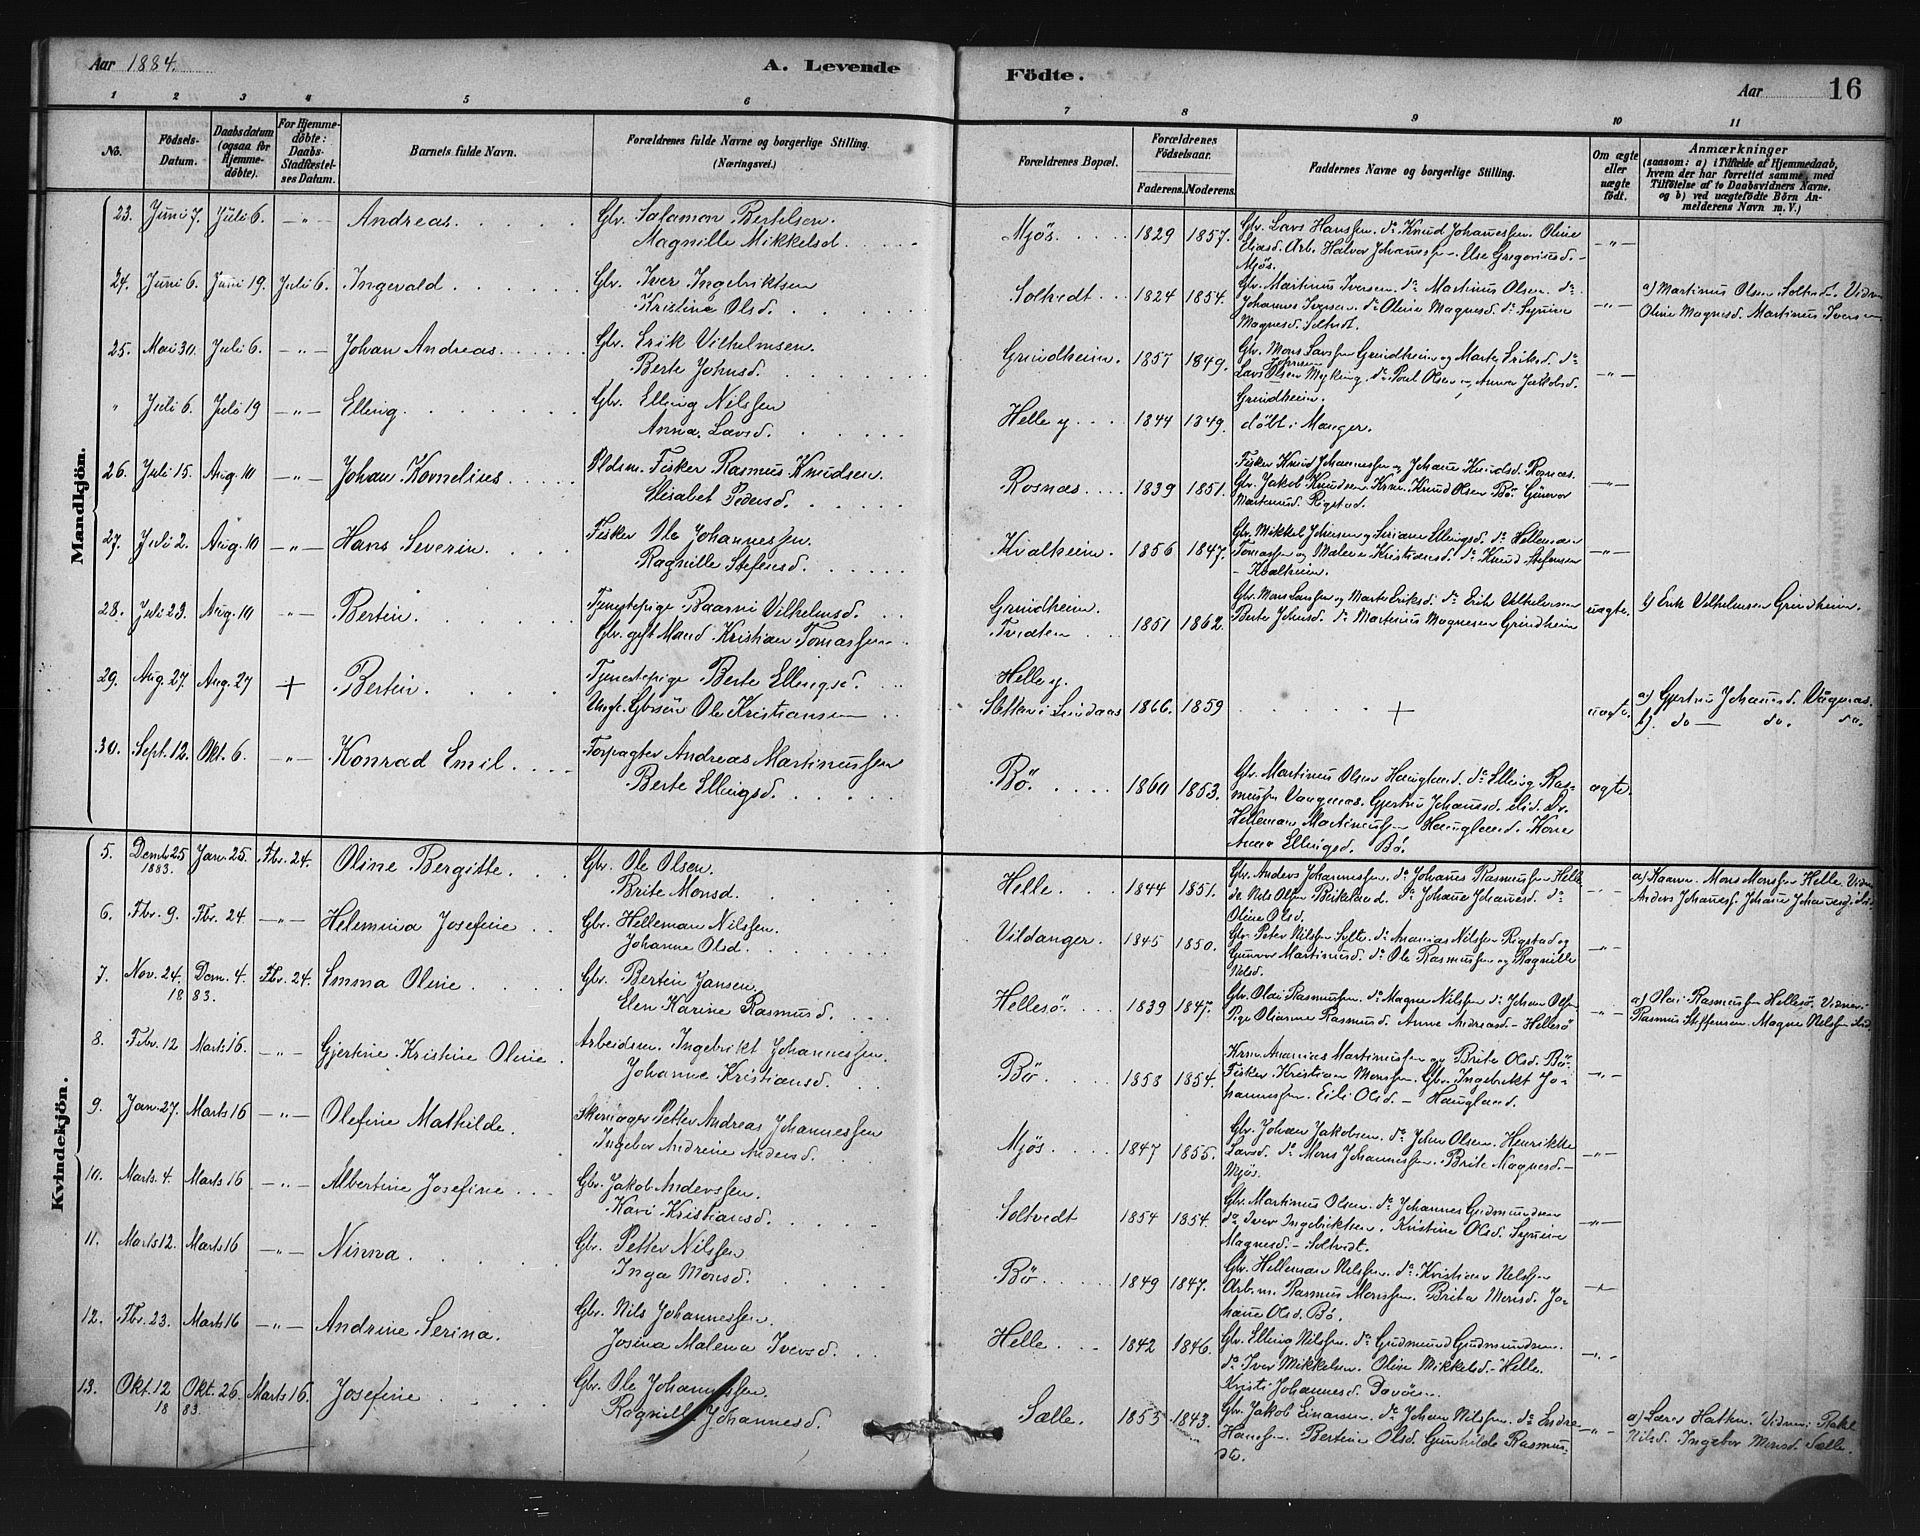 Aar 1884.
A. Levende
Födte.
Aar
16
1 2 3 4 5 6 7 8 9 10 11
No.
Födsels-Datum.
Daabsdatum (ogsaa for Hjemme-döbte).
For Hjemme-döbte: Daabs-Stadfæstel-ses Datum.
Barnets fulde Navn.
Forældrenes fulde Navne og borgerlige Stilling. (Næringsvei.)
Forældrenes Bopæl.
Forældrenes Födselsaar.
Faderens. Moderens.
Faddernes Navne og borgerlige Stilling.
Om ægte eller uægte födt.
Anmærkninger
(saasom: a) i Tilfælde af Hjemmedaab, hvem der har forrettet samme, med Tilföielse af to Daabsvidners Navne. og b) ved uægtefödte Börn An-melderens Navn m. V.)
Mandkjön.
23. Juni 7. Juli 6. -"- Andreas. Gbr. Salamon Bertelsen
Magnille Mikkelsd. Mjös. 1829 1857. Gbr. Lars Hanssen. do Knud Johanessen. Oline
Eliasd. Arb. Halvor Johanessen. Else Gregoriusd. -
Mjös. -"-
24. Juni 6. Juni 19. Juli 6. Ingevald Gbr. Iver Ingebriktsen
Kristine Olsd. Soltvedt 1824 1854. Gbr. Martinus Iversen. do Martinus Olsen. do
Johannes Iversen. do Oline Magnesd. do Synneve
Magnesd. Soltvedt. -"- a) Martinus Olsen Soltvedt. Vidner
Oline Magnesd. Martinus Iversen
25. Mai 30. Juli 6. -"- Johan Andreas Gbr. Erik Vilhelmsen.
Berte Johnsd. Grindheim. 1857 1849. Gbr. Mons Larssen Grindheim og Marte Eriksd. do
Lars Olsen Myking. do Poul Olsen og Anna Jakobsd.
Grindheim. -"-
" Juli 6. Juli 19 -"- Elling. Gbr. Elling Nilssen
Anna Larsd. Helle y. 1844 1849. döbt i Manger.
26. Juli 15. Aug. 10 -"- Johan Kornelius Pldsm. Fisker Rasmus Knudsen
Elisabet Pedersd. Rosnæs. 1839 1851. Fisker Knud Johannessen og Johane Knudsd. Rosnæs.
Gbr. Jakob Knudsen. Krm. Knud Olsen Bö. Gunvor
Martinusd. Rigstad. -"-
27. Juli 2. Aug. 10 -"- Hans Severin. Fisker Ole Johannessen.
Ragnille Stefensd. Kvalheim. 1856 1847. Gbr. Mikkel Johnsen og Siriane Ellingsd. do Helleman
Tomassen og Malene Kristiansd. do Knud Stefensen
- Kvalheim. -"-
28. Juli 23. Aug. 10 -"- Bertin. Tjenestepige Baarni Vilhelmsd.
Gbr. gift Mand Kristian Tomassen Grindheim.
Tvedten 1851 1862. Gbr. Mons Larssen og Marte Eriksd. do Erik Vilhelmsen
Berte Johnsd. do Martinus Magnesen Grindheim uægte. b) Erik Vilhelmsen Grindheim.
29. Aug. 27. Aug. 27 + Bertin. Tjenestepige Berte Ellingsd.
Ungk. Gbrsön Ole Kristiansen Helle y.
Sletten i Lindaas 1866. 1859 + uægte. a) Gjertru Johanesd. Vågenæs.
b) do — do. do.
30. Sept. 12. Okt. 6. -"- Konrad Emil. Forpagter Andreas Martinussen
Berte Ellingsd. Bö. 1860 1853. Gbr. Martinus Olsen Haugland. do Elling Ras-
mussen Vaagenæs. Gjertru Johanesd. ibid. do
Helleman Martinussen Haugland. Kone
Anna Ellingsd. Bö. ægte.
Kvindekjön.
5. Decmb. 25 1883. Jan. 25. Fbr. 24. Oline Bergitte. Gbr. Ole Olsen.
Brite Monsd. Helle. 1844 1851. Gbr. Anders Johannessen. do Johanes Rasmussen Helle
do Nils Olsen Birkeland. do Johane Johanesd. do
Oline Olsd. -"- a) Kaarm. Mons Monssen Helle. Vidner
Anders Johaness. Johane Johanesd. ibid.
6. Fbr. 9. Fbr. 24 -"- Helemina Josefine Gbr. Helleman Nilssen.
Johanne Olsd. Vildanger. 1845 1850. Gbr. Peter Nilssen Sylte. do Ananias Nilssen Rigstad og
Gunvor Martinusd. do Ole Rasmussen og Ragnille
Nilsd. -"-
7. Nov. 24. Decm. 4. 1883. Fbr. 24. Emma Oline Gbr. Bertin Jansen.
Elen Karine Rasmusd. Hellesö. 1839 1847. Gbr. Olai Rasmussen. do Magne Nilssen do Johan Olsen
Pige Olianne Rasmusd. Anne Andreasd. - Hellesö -"- a) Olai Rasmussen Hellesö. Vidner:
Rasmus Steffensen. Magne Nilssen ibid.
8. Febr. 12 Marts 16. -"- Gjertine Kristine Oline Arbeidsm. Ingebrikt Johannessen.
Johanne Kristiansd. Bö 1858 1854. Krm. Ananias Martinussen og Brite Olsd. Bö.
Fisker Kristian Monssen. Gbr. Ingebrikt Jo-
hannessen. Eili Olsd. - Haugland. -"-
9. Jan. 27. Marts 16 -"- Olefine Mathilde. Skomager Petter Andreas Johannessen
Ingebor Andrine Andersd. Mjös. 1847 1855. Gbr. Johan Jakobsen. do John Olsen. Henrikke
Larsd. do Mons Johannessen. Brite Magnesd. -
Mjös. -"-
10. Marts. 4. Marts 16 -"- Albertine Josefine Gbr. Jakob Anderssen.
Kari Kristiansd. Soltvedt 1854 1854. Gbr. Martinus Olsen. do Johannes Gudmundsen
do Iver Ingebriktsen. Kristine Olsd. Synneve
Magnesd. - Soltvedt. -"-
11. Marts 12. Marts 16 -"- Ninna. Gbr. Petter Nilssen
Inga Monsd. Bö 1849 1847. Gbr. Helleman Nilssen. do Kristian Nilssen
Arb. m. Rasmus Monssen. Brita Monsd. Jo-
hane Olsd. Bö. -"-
12. Fbr. 23. Marts 16 -"- Andrine Serina. Gbr. Nils Johannessen.
Josina Malena Iversd. Helle. 1842 1846. Gbr. Elling Nilssen. do Gudmund Gudmundsen.
do Iver Mikkelsen. Oline Mikkelsd. Helle.
Kristi Johannesd. -"-
13. Okt. 12 Okt. 26. 1883. Marts 16. Josefine Gbr. Ole Johannessen.
Ragnille Johannesd. Sælle. 1853 1843. Gbr. Jakob Einarsen. do Johan Nilssen. do Endre
Hanssen. Bertine Olsd. Gunhilde Rasmus-
do. -"- a) Lærer Vidner:
Nilsd. Ingebor Monsd. Sælle.